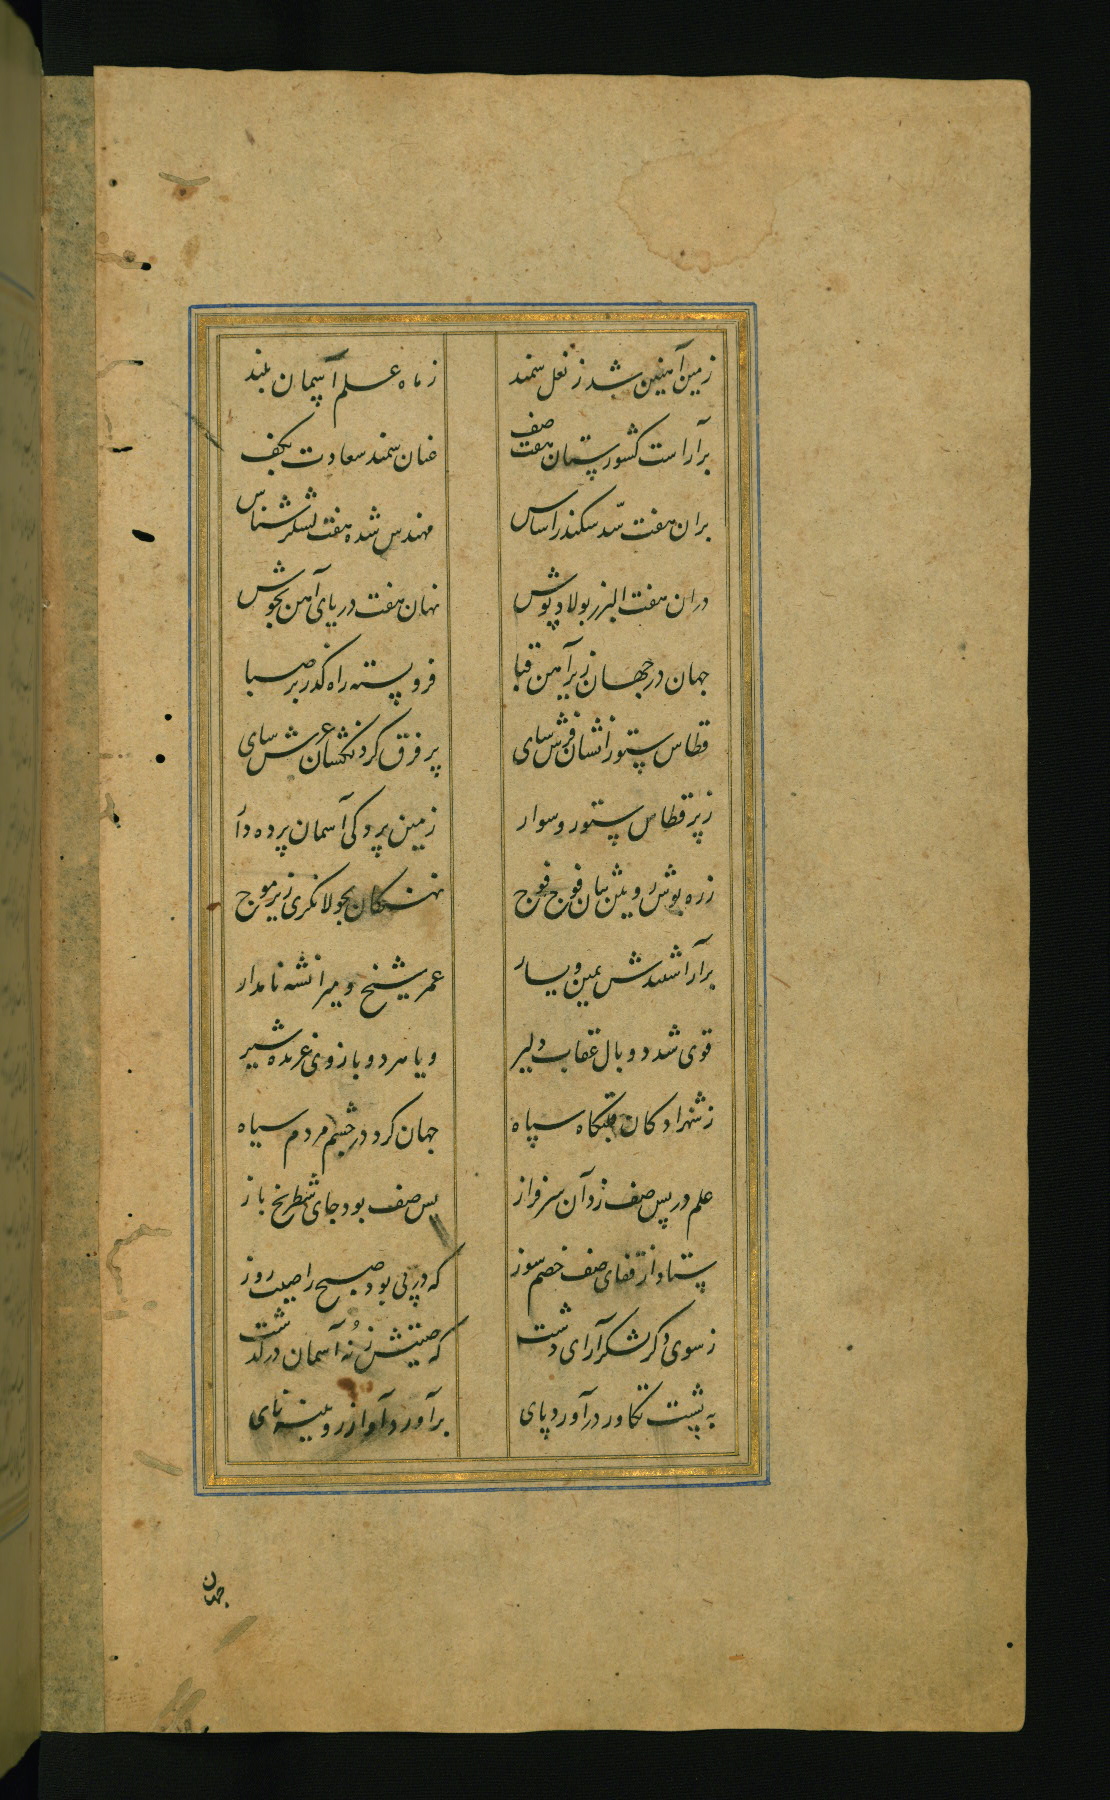 زمین آهنین شد ز نعل سمند ز ماه علم آسمان بلند
برآراست کشورستان هفت صف عنان سمند سعادت بکف
بران هفت سد سکندر اساس مهندس شده هفت لشکر شناس
دران هفت البرز بولاد پوش نهان هفت دریای آهن بجوش
جهان در جهان زیر آهن قبا فروبسته راه گذر بر صبا
قطاس ستوزانشان فرش سای پر فرق گردنکشان عرش سای
ز پر قطاس ستور و سوار زمین پردگی آسمان پرده دار
زره پوش رویین تنان فوج فوج نهنگان بجولانکری زیر موج
برآراستندش یمین و یسار عمر شیخ و میرانشه نامدار
قوی شد دو بال عقاب دلیر و یا مر دو بازوی غرنده شیر
ز شهزادگان قلبکاه سپاه جهان کرد در چشم مردم سیاه
علم در پس صف زد آن سرفراز پس صف بود جای شطرنج باز
ستاد از قفای صف خصم سوز که در پی بود صبح را صیت روز
ز سوی دگر لشکرآرای دشت که صیتش ز نه آسمان درگذشت
به پشت تکاور درآورد پای برآورد آواز رویینه نای
جهان